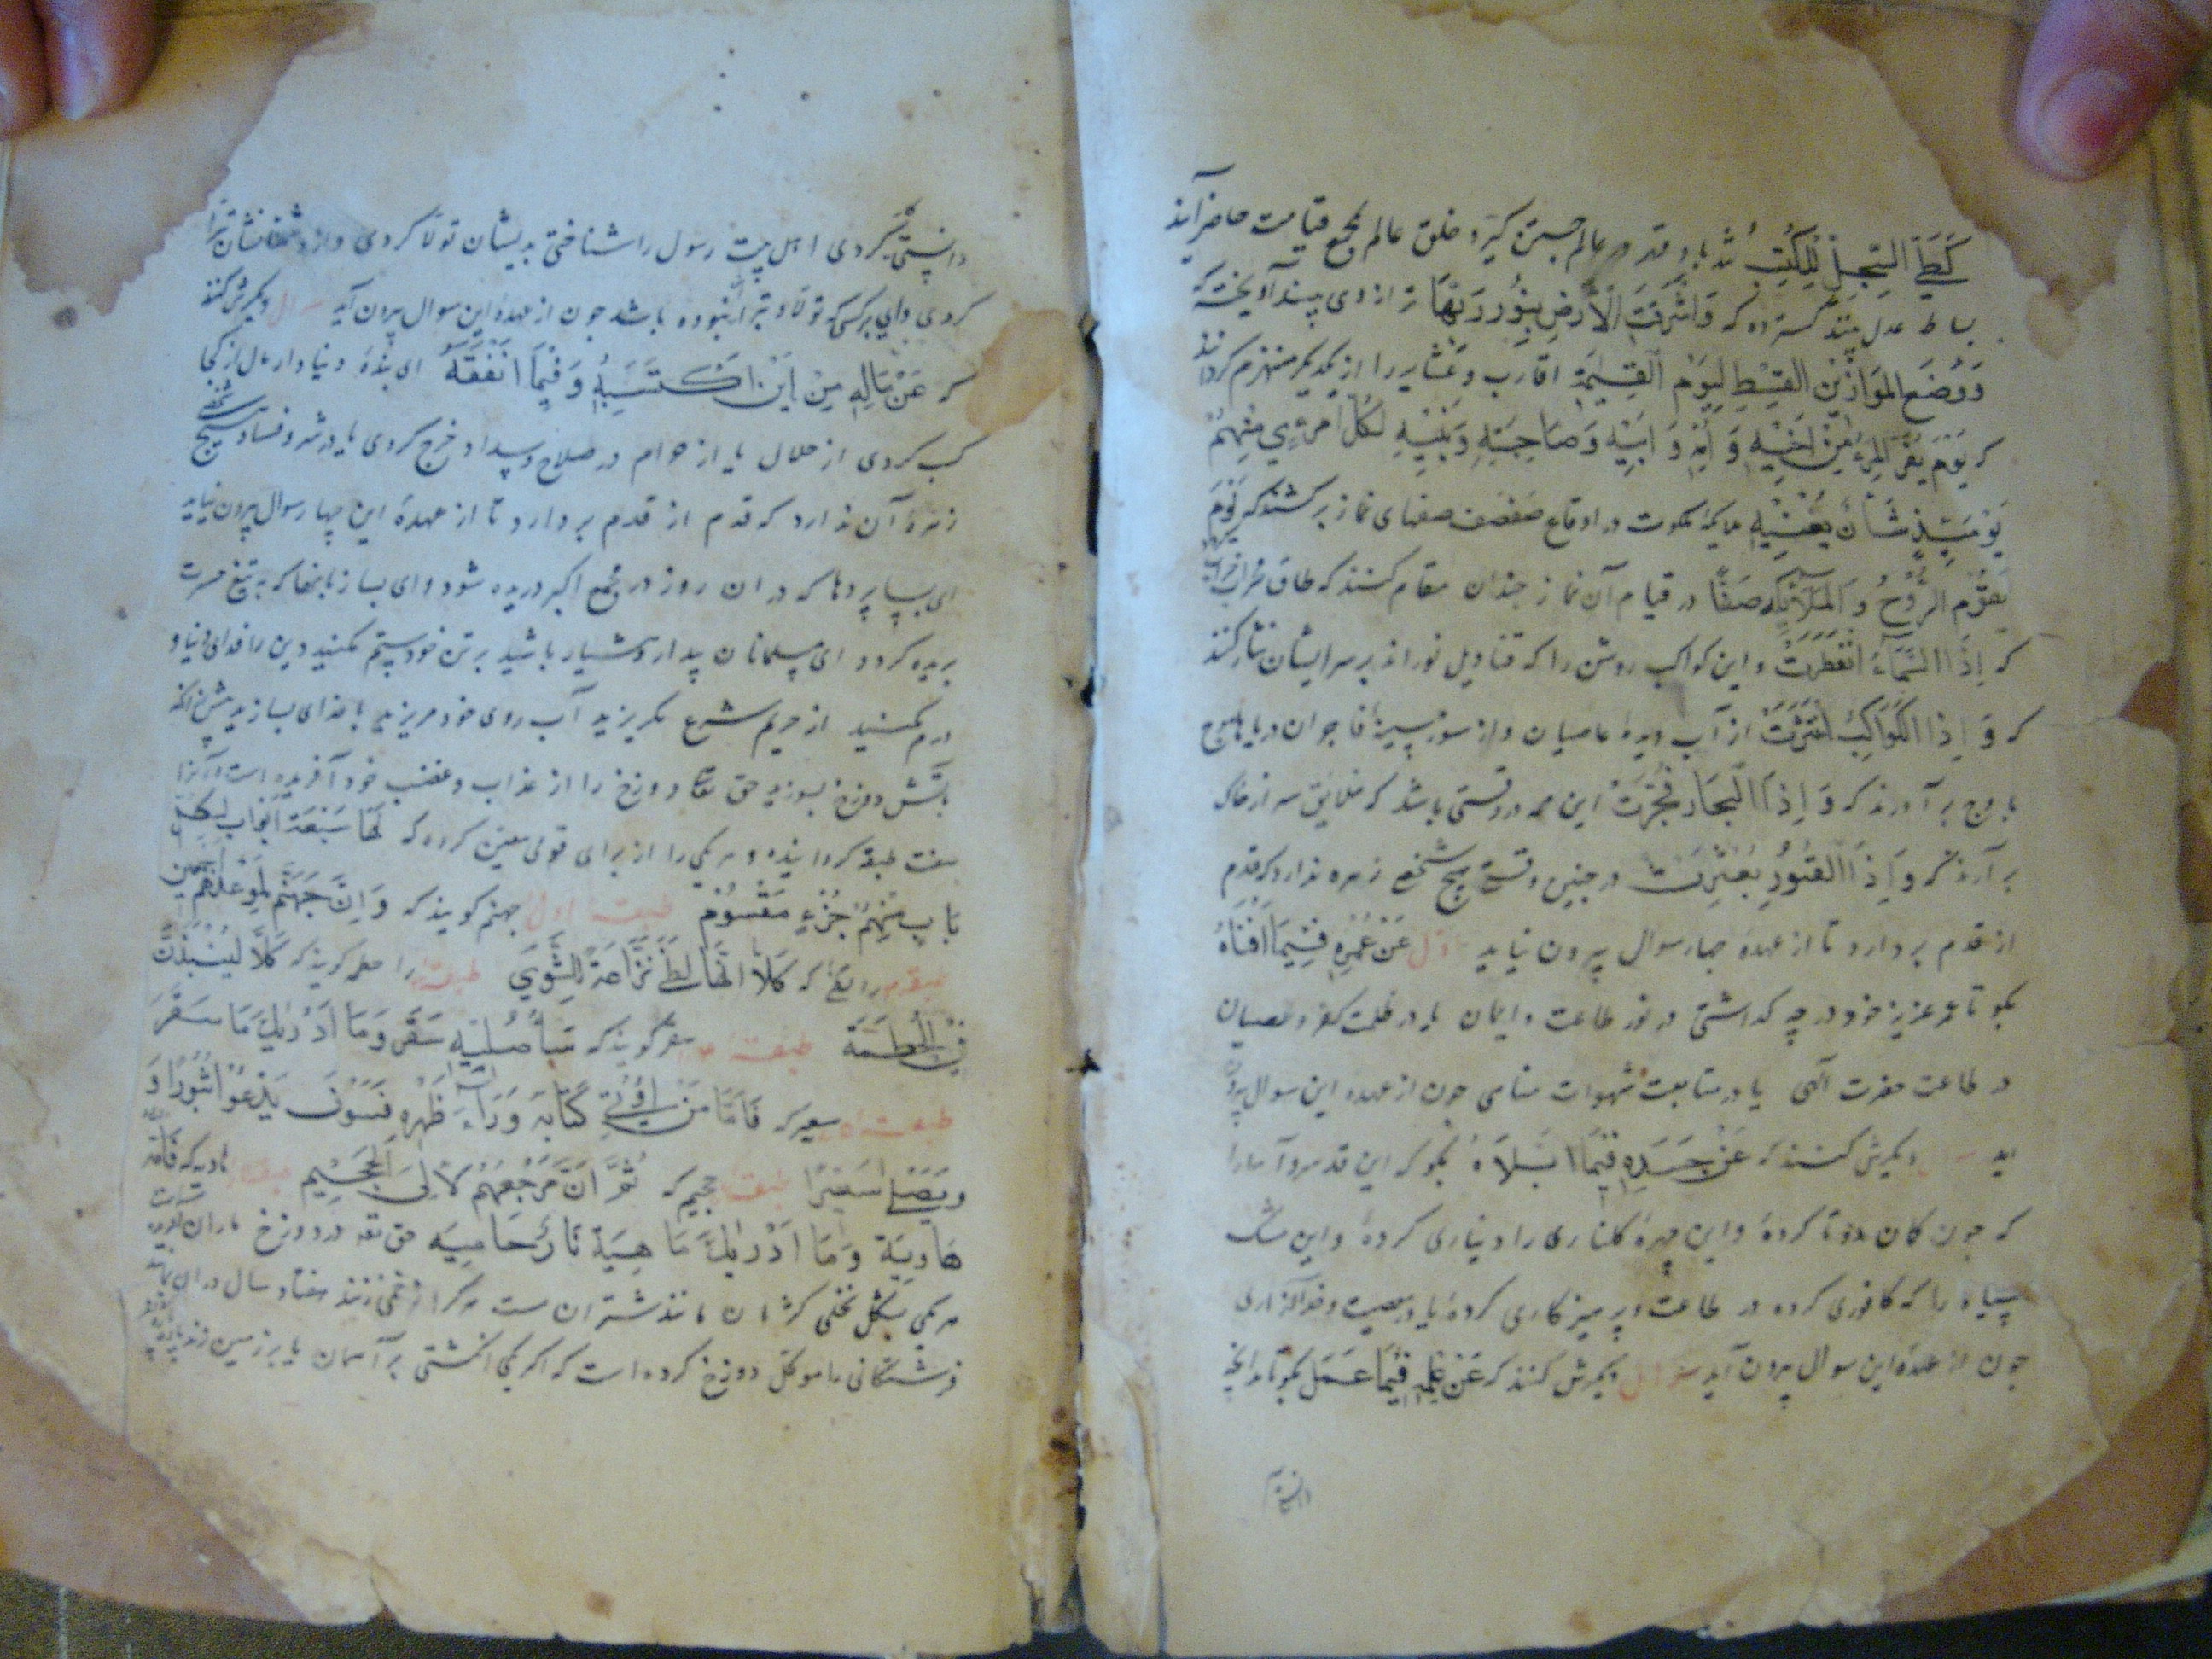 كَطَيِّ السِّجِلِّ لِلْكُتُبِ شد باد قدر در عالم جستن گیرد خلق عالم بمجمع قیامت حاضر آیند
بساط عدل بینند گسترده که وَاَشْرَقَتِ الْاَرْضُ بِنُورِ رَبِّهَا ترازوی بینند آویخته که
وَوُضِعَ الْمَوَازِیْنَ الْقِسْطِ لِیَوْمِ الْقِیٰمَةِ اقارب و عشایر را از یکدیگر منهزم گردانند
که یَوْمَ یَفِرُّ الْمَرْءُ مِنْ اَخِیْهِ وَ اُمِّهِ وَ اَبِیْهِ وَصَاحِبَتِهِ وَبَنِیْهِ لِکُلِّ امْرِئٍ مِنْهُمْ
یَوْمَئِذٍ شَأْنٌ یُغْنِیْهِ ملایکهٔ ملکوت در اوقاع صفصف صفهای نماز برکشند که یَوْمَ
یَقُوْمُ الرُّوْحُ وَ الْمَلَآئِکَةُ صَفًّا در قیام آن نماز چندان مقام کنند که طاق
که اِذَا السَّمَآءُ انْفَطَرَتْ و این کواکب روشن را که قنادیل نوراند بر سر ایشان نثار کنند
که وَ اِذَا الْکَوَاکِبُ انْتَثَرَتْ از آب دیدهٔ عاصیان و از سوز سینهٔ فاجران دریاها موج
باوج برآورند که وَ اِذَا الْبِحَارُ فُجِّرَتْ این همه در وقتی باشد که خلایق سر از خاک
برآرند که وَ اِذَا الْقُبُوْرُ بُعْثِرَتْ در چنین وقتی هیچ شخصی زهره ندارد که قدم
از قدم بردارد تا از عهدهٔ چهار سوال بیرون نیاید اول عَنْ عُمْرِهِ فِیْمَا اَفْنَاهُ
بگو تا عمر عزیز خود در چه گذاشتی در نور طاعت و ایمان یا در ظلمت کفر و عصیان
در طاعت حضرت الهی یا در متابعت شهوات مناهی چون از عهدهٔ این سوال بیرون
آید سوال دیگرش کنند که عَنْ جَسَدِهِ فِیْمَا اَبْلَاهُ بگو که این قد سرو آسا را
که چون کمان دوتا کردهٔ و این چهرهٔ گلناری را دیناری کردهٔ و این مشک
سیاه را که کافوری کرده در طاعت و پرهیزکاری کردهٔ یا در معصیت و
چون از عهدهٔ این سوال بیرون آید سوال دیگرش کنند که عَنْ عِلْمِهِ فِیْمَا عَمِلَ بگو تا بدانچه
دانستی
دانستی چه کردی اهل بیت رسول را شناختی بدیشان تولا کردی و از دشمنانشان تبرا
کردی و ای بر کسی که تولا و تبرا نبوده باشد چون از عهدهٔ این سوال بیرون آید سوال دیگرش کنند
که عَنْ مَالِهِ مِنْ اَیْنَ اکْتَسَبَهُ وَ فِیْمَا اَنْفَقَهُ ای بندهٔ دنیادار مال از کجا
کسب کردی از حلال یا از حرام در صلاح و سداد خرج کردی یا در شر و فساد هیچ
زهرهٔ آن ندارد که قدم از قدم بردارد تا از عهدهٔ این چهار سوال بیرون نیاید
ای بسا پردها که در آن روز در مجمع اکبر دریده شود و ای بسا زبانها که به تیغ حسرت
بریده گردد ای مسلمانان بیدار و هشیار باشید بر تن خود ستم مکنید دین را فدای دنیا و
درم مکنید از حریم شرع مگریزید آب روی خود مریزید با خدای بسازید پیش از آنکه
بآتش دوزخ بسوزید حق تعا دوزخ را از عذاب و غضب خود آفریده است و آنرا
هفت طبقه گردانیده و هر یکی را از برای قومی معین کرده که لَهَا سَبْعَةُ اَبْوَابٍ لِکُلِّ
بَابٍ مِنْهُمْ جُزْءٌ مَقْسُوْمٌ طبقهٔ اول جهنم گویند که وَ اِنَّ جَهَنَّمَ لَمَوْعِدُهُمْ اَجْمَعِیْنَ
که کَلَّا اِنَّهَا لَظٰی نَزَّاعَةً لِلشَّوٰی طبقهٔ را حطمه گویند که کَلَّا لَیُنْبَذَنَّ
فِی الْحُطَمَةِ طبقهٔ سقر گویند که سَاُصْلِیْهِ سَقَرَ وَمَا اَدْرٰیکَ مَا سَقَرَ
طبقهٔ سعیر که فَاَمَّا مَنْ اُوْتِیَ کِتَابَهُ وَرَآءَ ظَهْرِهِ فَسَوْفَ یَدْعُوْا ثُبُوْرًا وَ
وَیَصْلٰی سَعِیْرًا طبقهٔ جحیم که ثُمَّ اِنَّ مَرْجِعَهُمْ لَاِلَی الْجَحِیْمِ طبقهٔ هاویه که فَاُمُّهُ
هَاوِیَةٌ وَمَا اَدْرٰیکَ مَا هِیَهْ نَارٌ حَامِیَه حق تعه در دوزخ ماران آفریده
هر یکی بشکل نخلی کژدمان مانند شتران مست هر کرا زخمی زنند هفتاد سال در آن بماند
فرشتگانی را موکل دوزخ کرده است که اگر یکی انگشتی بر آسمان یا بر زمین زند